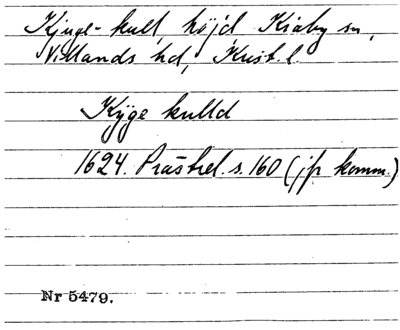 Kjuge-kull, höjd, Kiaby sn,
Villands hd, Krist. l.
Kÿge kulld
1624. Prästrel. s. 160 (jfr komm.)
Nr 5479.